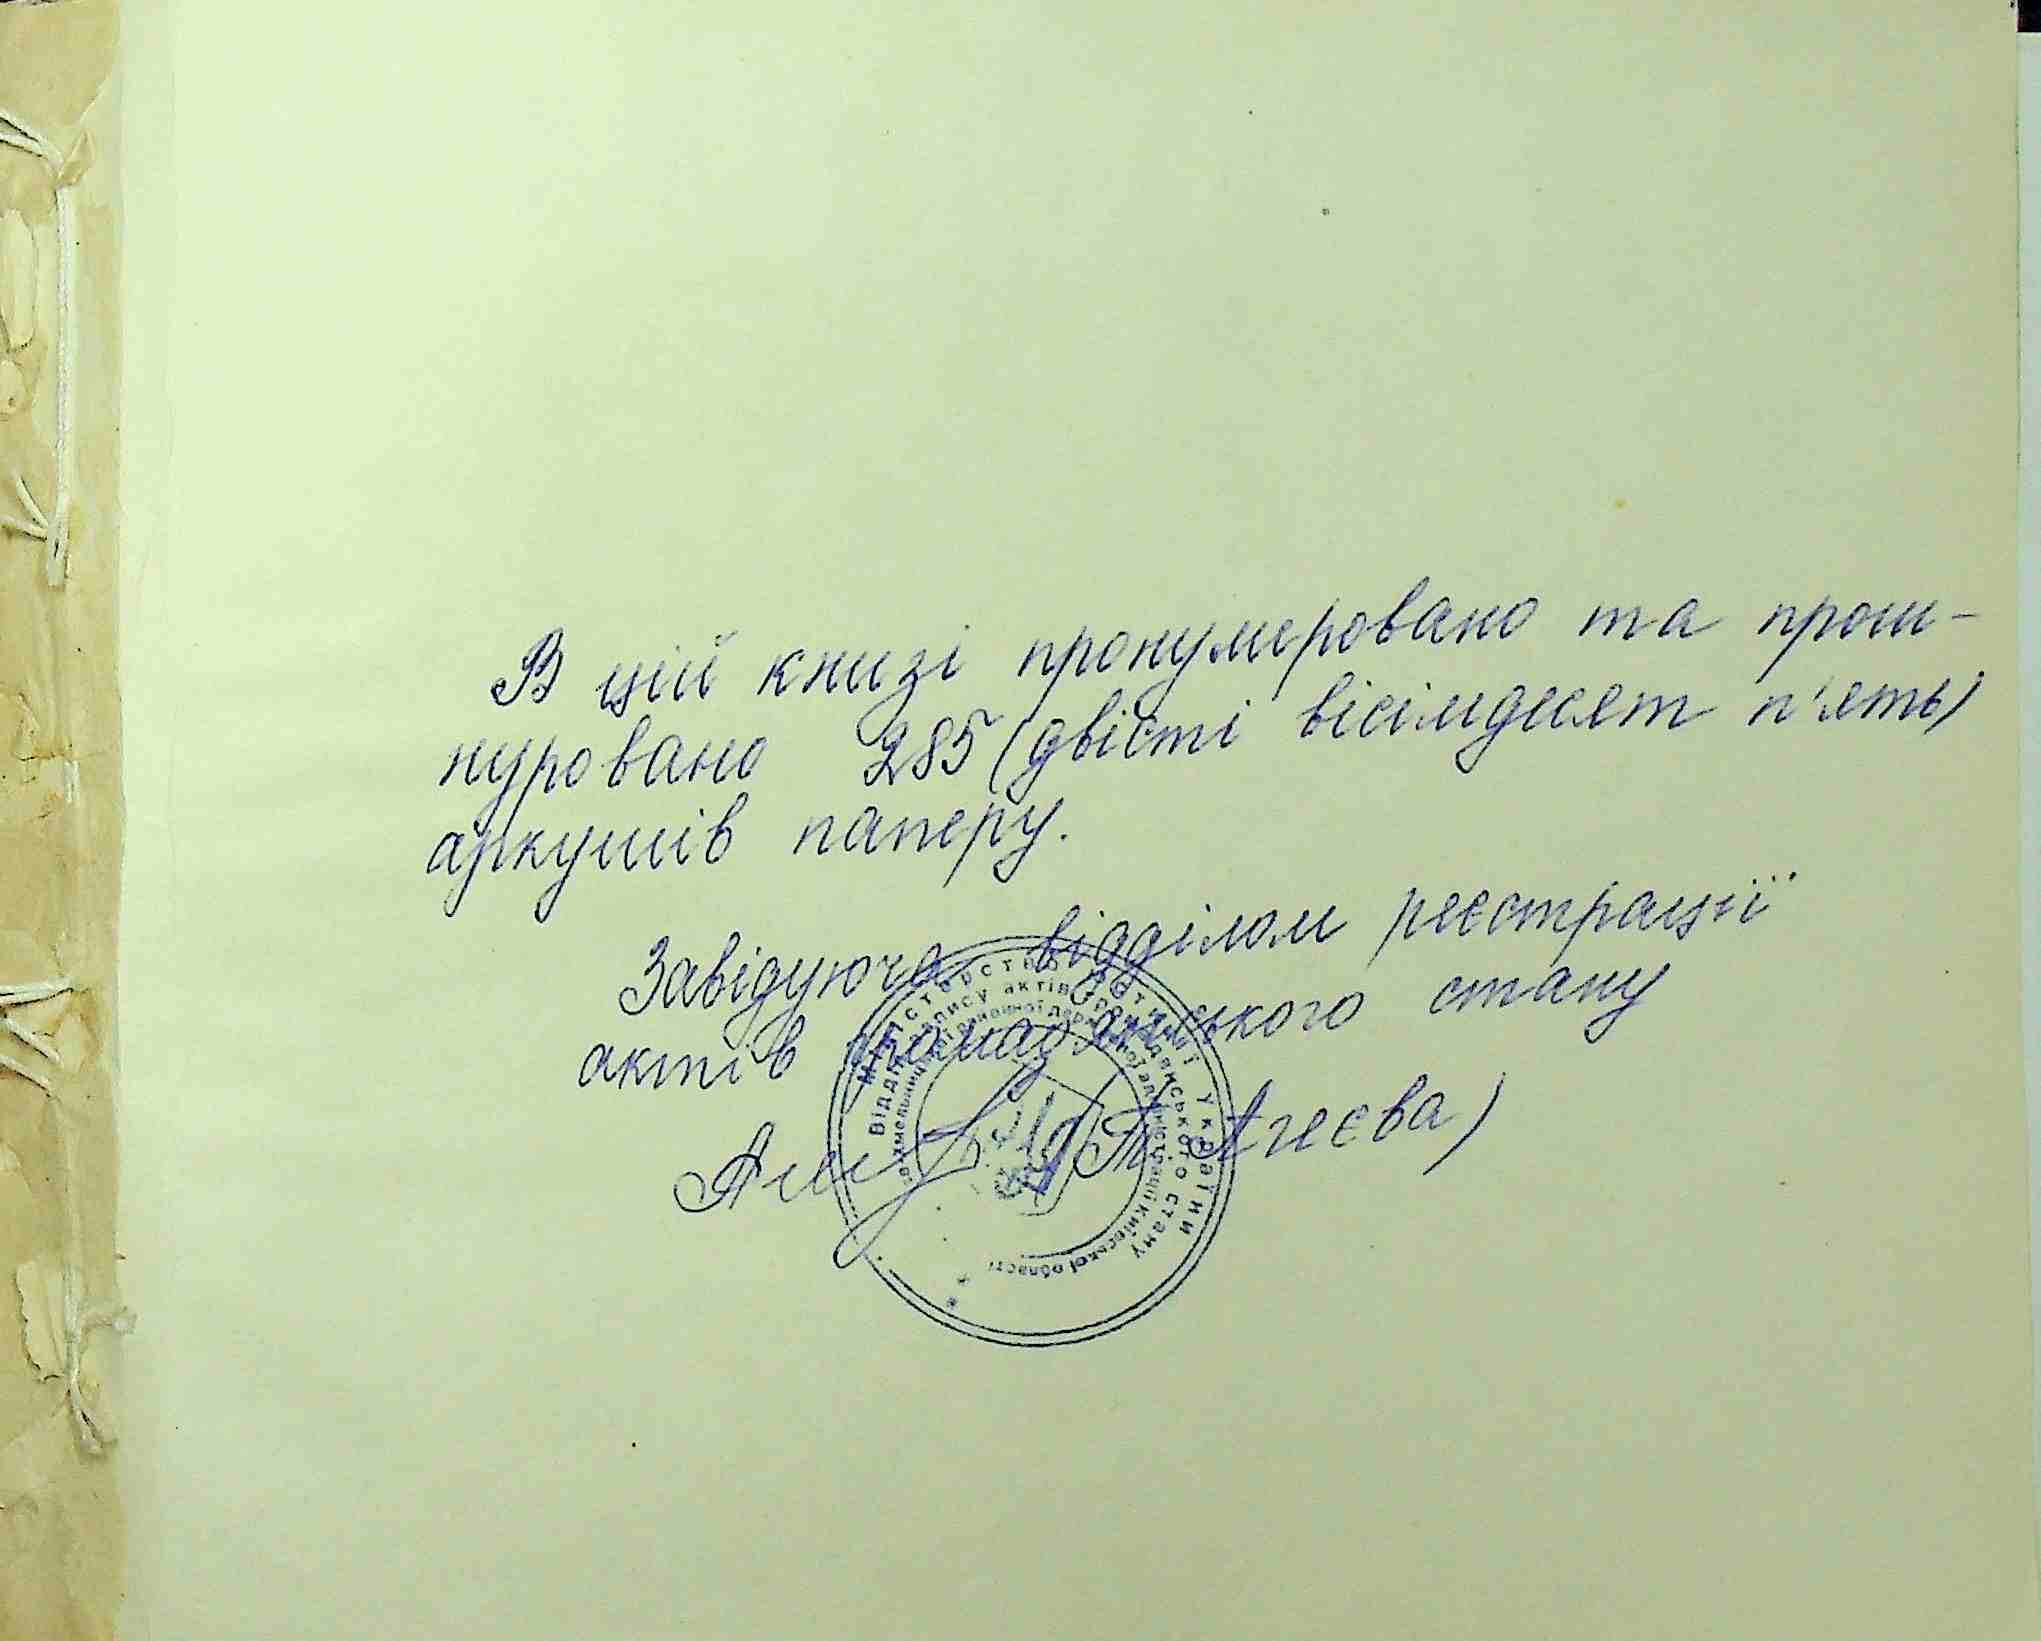 В цій книзі пронумеровано та прош-
нуровано 285 (двісті вісімдесят п'ять)
аркушів паперу.
Завідуюча відділом реєстрації
актів громадянського стану
(Т. Агеєва)
Міністерство юстиції України
Відділ запису актів громадянського стану
районної державної адміністрації Київської області